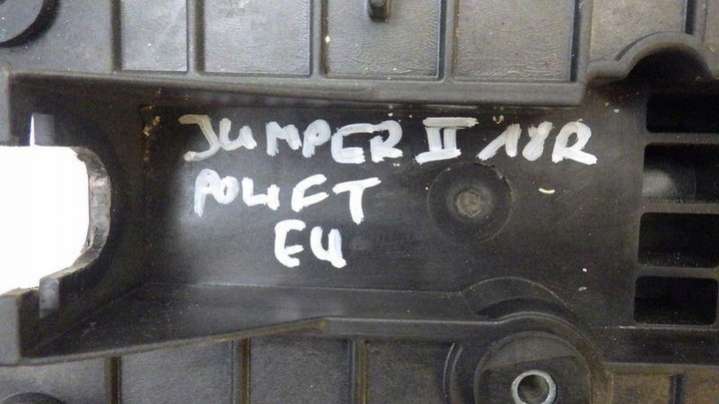 JUMPER II 18R
POLIFT
EU